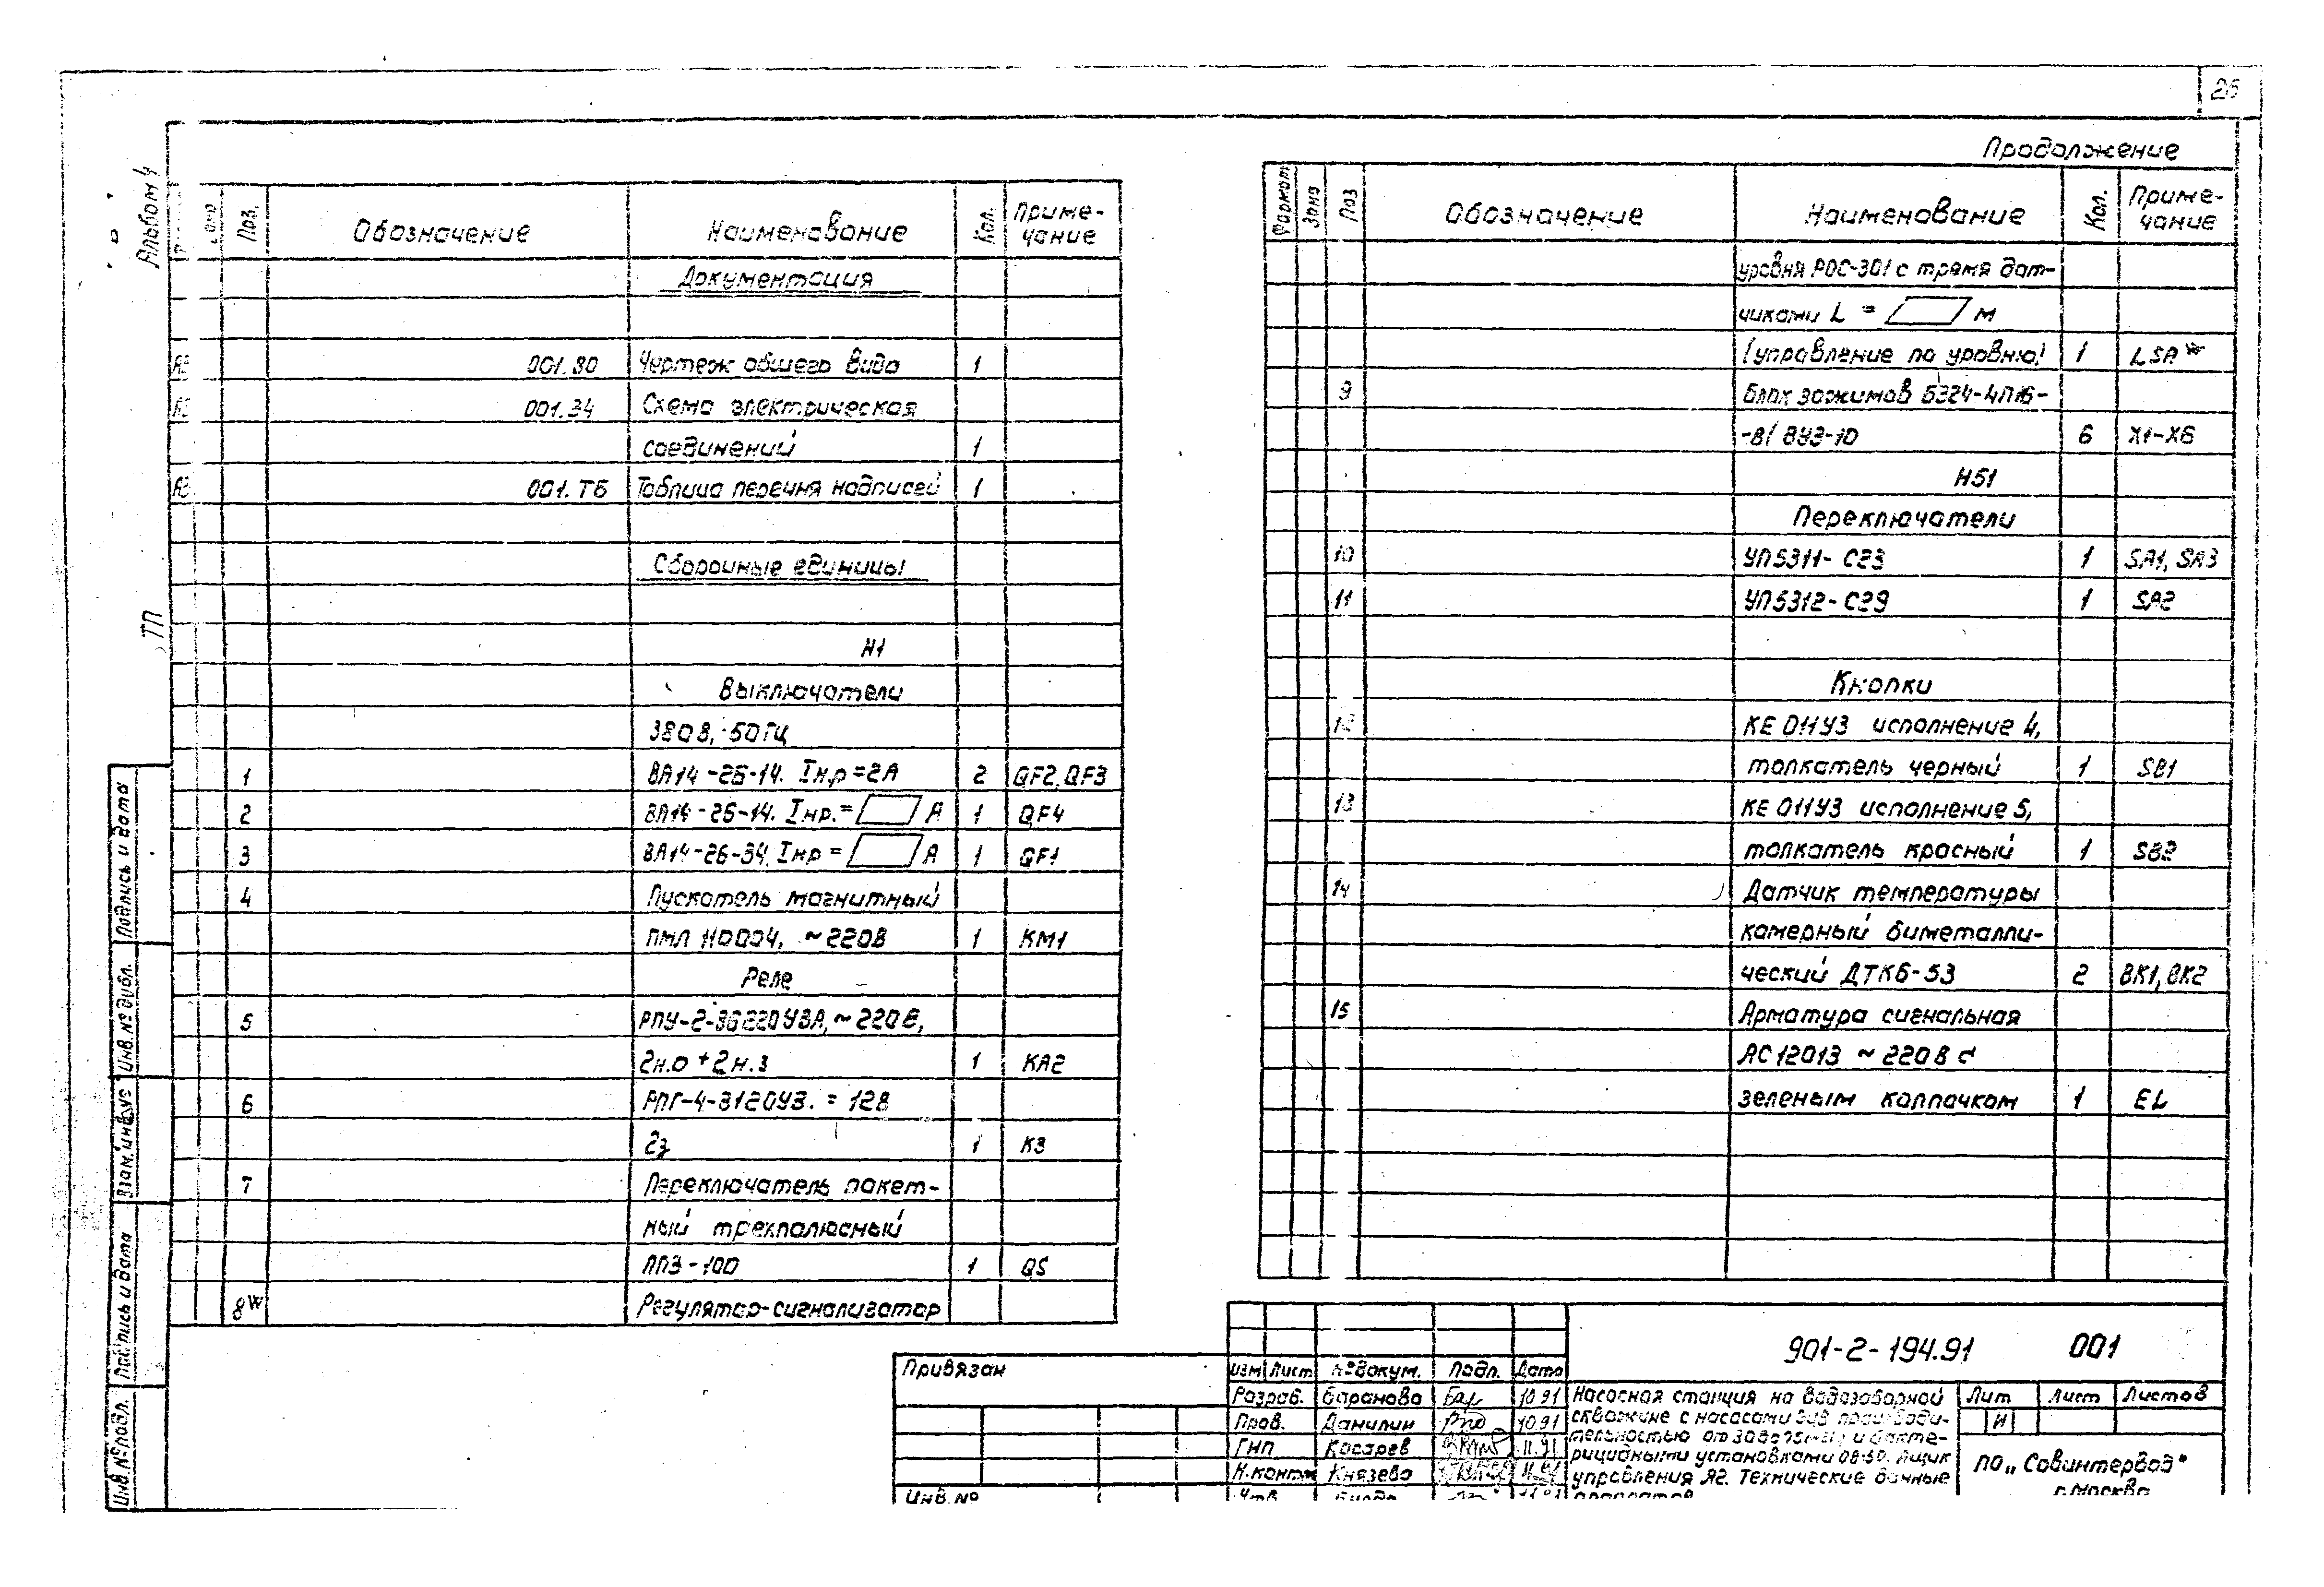 26
Альбом 4
ТП
Поз. Обозначение Наименование Кол. Приме-
чание
Документация
001.ВО Чертеж общего вида 1
001.Э4 Схема электрическая
соединений 1
А3 001.ТБ Таблица перечня надписей 1
Сборочные единицы
Н1
Выключатели
380В, 50Гц
1 ВА14-26-14. Iн.р=2А 2 QF2, QF3
2 ВА14-26-14. Iнр.= А 1 QF4
3 ВА14-26-34. Iнр = А 1 QF1
4 Пускатель магнитный
ПМЛ 110004, ~220В 1 КМ1
Реле
5 РПУ-2-36220У3А, ~220В,
2н.о + 2н.з 1 КА2
6 РПГ-4-3120У3. = 12В
2з 1 К3
7 Переключатель пакет-
ный трехполюсный
ПП3-100 1 QS
8 Регулятор-сигнализатор
Продолжение
Формат Зона Поз Обозначение Наименование Кол. Приме-
чание
уровня РОС-301 с тремя дат-
чиками L = м
(управление по уровню) 1 LSA
9 Блок зажимов БЗ24-4П16-
-В/ВУ3-10 6 Х1-Х6
Н51
Переключатели
10 УП5311-С23 1 SA1, SA3
11 УП5312-С29 1 SA2
Кнопки
12 КЕ 011У3 исполнение 4,
толкатель черный 1 SB1
13 КЕ 011У3 исполнение 5,
толкатель красный 1 SB2
14 Датчик температуры
камерный биметалли-
ческий ДТКБ-53 2 ВК1, ВК2
15 Арматура сигнальная
АС12013 ~220В с
зеленым колпачком 1 EL
Подпись и дата
Инв. № дубл.
Взам. инв. №
Подпись и дата
Инв. № подл.
Привязан
Инв. №
Изм Лист № докум. Подп. Дата
Разраб. Баранова 10.91
Пров. Данилин 10.91
ГИП Косарев 11.91
Н.контр Князева 11.91
Утв. 11.91
901-2-194.91 001
Насосная станция на водозаборной
скважине с насосами ЭЦВ производи-
тельностью от и бакте-
рицидными установками ОВ-50. Ящик
управления ЯГ. Технические данные
аппаратов
Лит Лист Листов
И
ПО „Совинтервод"
г. Москва